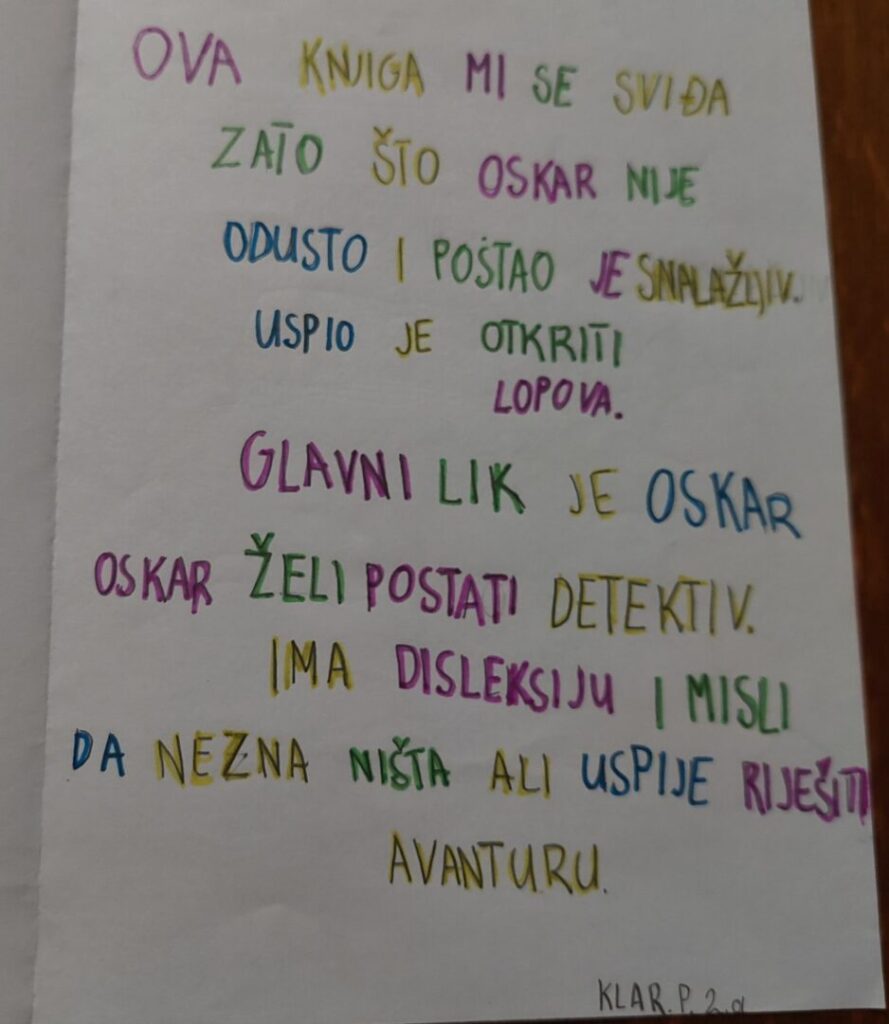 OVA KNJIGA MI SE SVIĐA
ZATO ŠTO OSKAR NIJE
ODUSTO I POSTAO JE SNALAŽLJIV.
USPIO JE OTKRITI
LOPOVA.
GLAVNI LIK JE OSKAR
OSKAR ŽELI POSTATI DETEKTIV.
IMA DISLEKSIJU I MISLI
DA NEZNA NIŠTA ALI USPIJE RIJEŠITI
AVANTURU.
KLAR.P. 2.a